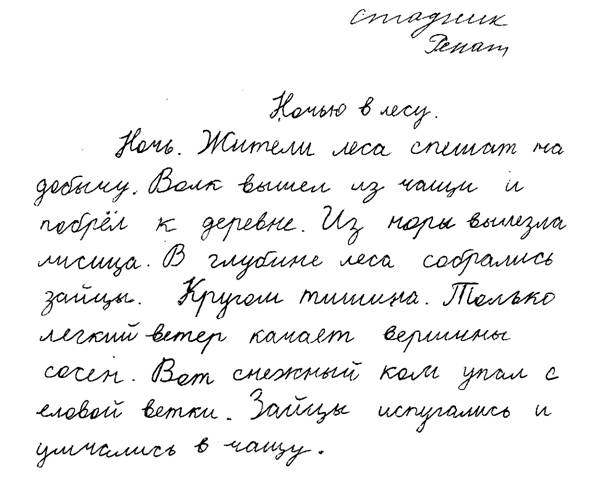 Стадник
Ренат
Ночью в лесу.
Ночь. Жители леса спешат на
добычу. Волк вышел из чащи и
побрёл к деревне. Из норы вылезла
лисица. В глубине леса собрались
зайцы. Кругом тишина. Только
легкий ветер качает вершины
сосен. Вот снежный ком упал с
еловой ветки. Зайцы испугались и
умчались в чащу.